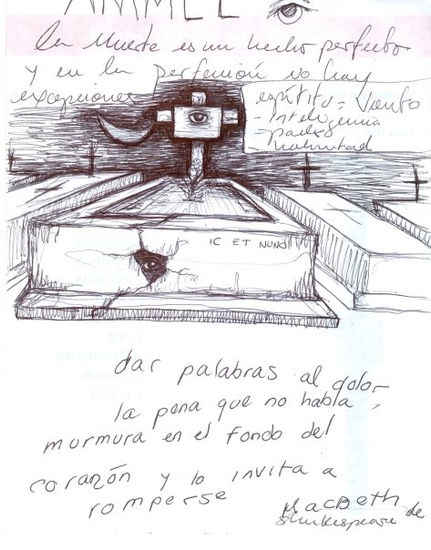 la Muerte es un hecho perfecto
y en la perfección no hay
excepciones
espíritu = viento
- inteligencia
- 
voluntad
IC ET NUNC
dar palabras al dolor
la pena que no habla,
murmura en el fondo del
corazón y lo invita a
romperse
MacBeth de
Shakespeare